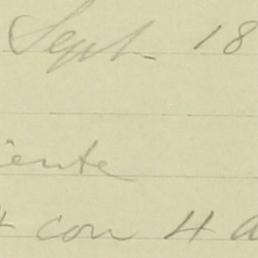 Sept 18
iente
4 con 4 a